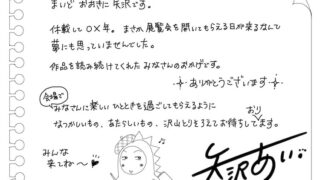 まいど おおきに 矢沢です。
休載して○×年。まさか展覧会を開いてもらえる日が来るなんて
夢にも思っていませんでした。
作品を読み続けてくれたみなさんのおかげです。
ありがとうございます
会場で
みなさんに楽しいひとときを過ごしてもらえるように
おり
なつかしいもの、あたらしいもの、沢山とりそろえてお待ちしてます。
みんな
来てね〜♥
矢沢あい